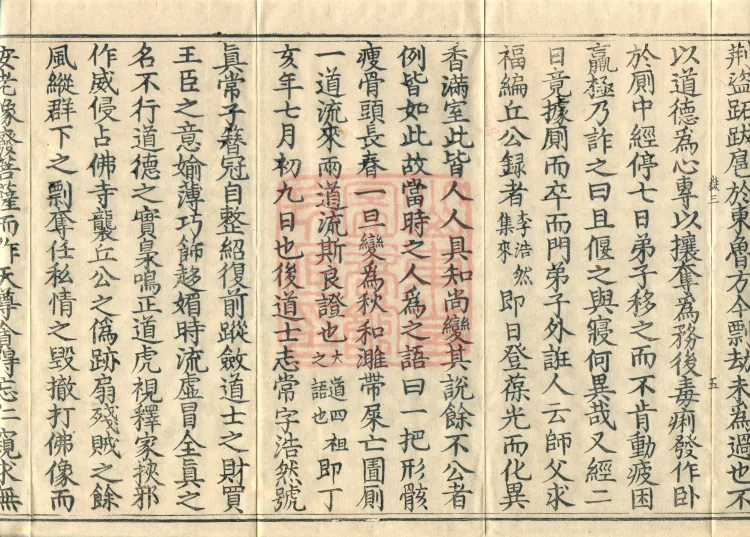 荆盜跖跋扈於東魯方今剽劫未為過也不
以道德為心專以攘奪為務後毒痢發作卧
於厠中經停七日弟子移之而不肯動疲困
羸極乃詐之曰且偃之與寢何異哉又經二
日竟據厠而卒而門弟子外誑人云師父求
福編丘公録者李浩然集來即日登葆光而化異
香滿室此皆人人具知尚變其說餘不公者
例皆如此故當時之人為之語曰一把形骸
瘦骨頭長春一旦變為秋和濉帶屎亡圊厠
一道流來兩道流斯良證也大道四祖之語也即丁
亥年七月初九日也後道士志常字浩然號
真常子簪冠自整紹復前蹤斂道士之財買
王臣之意媮薄巧飾趍媚時流虛冒全真之
名不行道德之實梟鳴正道虎視釋家挾邪
作威侵占佛寺襲丘公之偽跡扇殘賊之餘
風縱群下之剽奪任私情之毀撤打佛像而
安老像廢菩薩而作天尊貪得忘仁窺求無
五